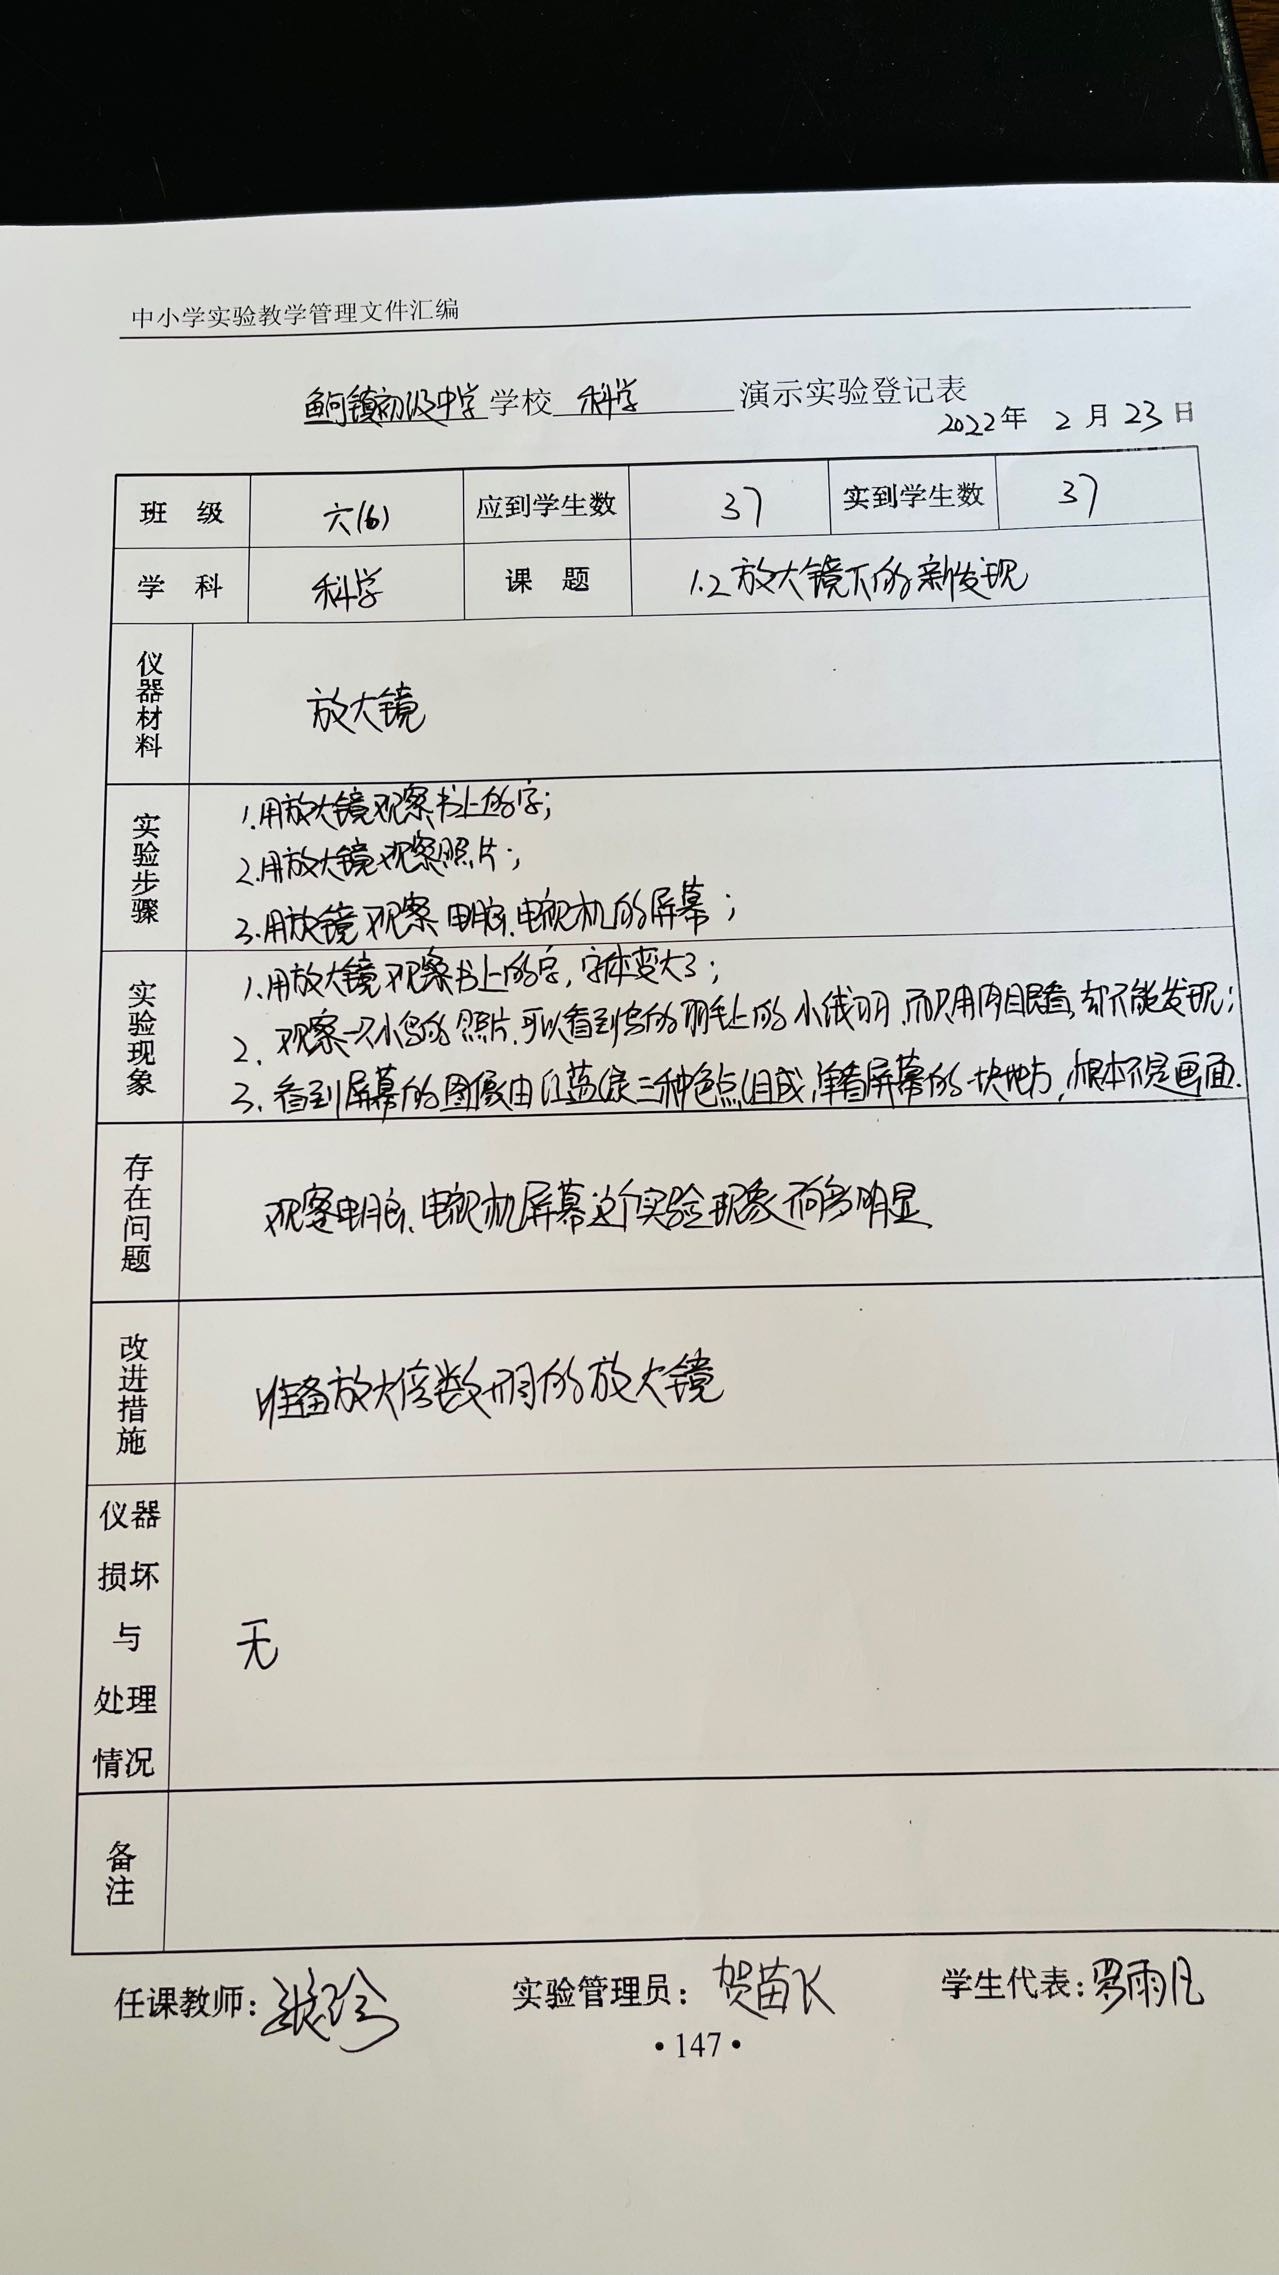 中小学实验教学管理文件汇编
鱼河镇初级中学学校 科学 演示实验登记表
2022年 2 月 23 日
班 级 六(6) 应到学生数 37 实到学生数 37
学 科 科学 课 题 1.2放大镜下的新发现
仪器材料 放大镜
实验步骤
1.用放大镜观察书上的字；
2.用放大镜观察照片；
3.用放镜观察电脑、电视机的屏幕；
实验现象
1.用放大镜观察书上的字，字体变大了；
2. 观察一只小鸟的照片，可以看到鸟的羽毛上的小绒羽，而只用肉眼看，却不能发现；
3. 看到屏幕的图像由红蓝绿三种色点组成，单看屏幕的一块地方，根本不是画面.
存在问题 观察电脑、电视机屏幕这个实验现象不够明显.
改进措施 准备放大倍数不同的放大镜
仪器
损坏
与
处理
情况
无
备注
任课教师： 实验管理员：贺苗 学生代表：罗雨凡
•147•